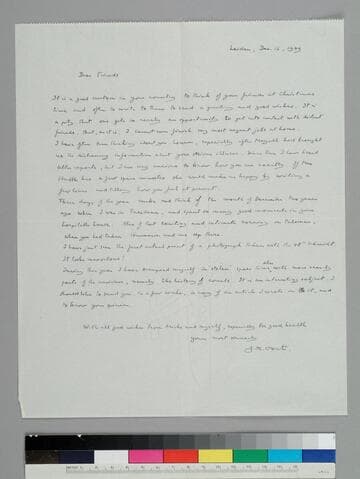 Leiden, Dec. 12, 1949
Dear Friends
It is a good custom in your country to think of your friends at Christmas
time and often to write to them to send a greeting and good wishes. It is
a pity that one gets so rarely an opportunity to get into contact with distant
friends. But, as it is, I cannot even finish my most urgent jobs at home.
I have often been thinking about you however, especially after had brought
us the distressing information about your serious illness. Since then I have heard
better reports, but I am very anxious to know how you are exactly. If Mrs
Hubble has a few spare minutes she would make us happy by writing a
few lines and telling how you feel at present.
These days of the year make me think of the month of December two years
ago when I was in Pasadena, and spent so many good moments in your
hospitable house. Also of that exciting and intimate evening on Palomar,
when you had taken and me up there.
I have just seen the first actual print of a photograph taken with the 48" Schmidt.
It looks marvelous!
During this year I have occupied myself in stolen spare time also with more nearby
part of the universe, namely the history of comets. It is an interesting subject. I
should like to send you, in a few weeks, a copy of an article I wrote on it, and
to know your opinion.
With all good wishes from Mieke and myself, especially for good health
yours most sincerely
J.H. Oort